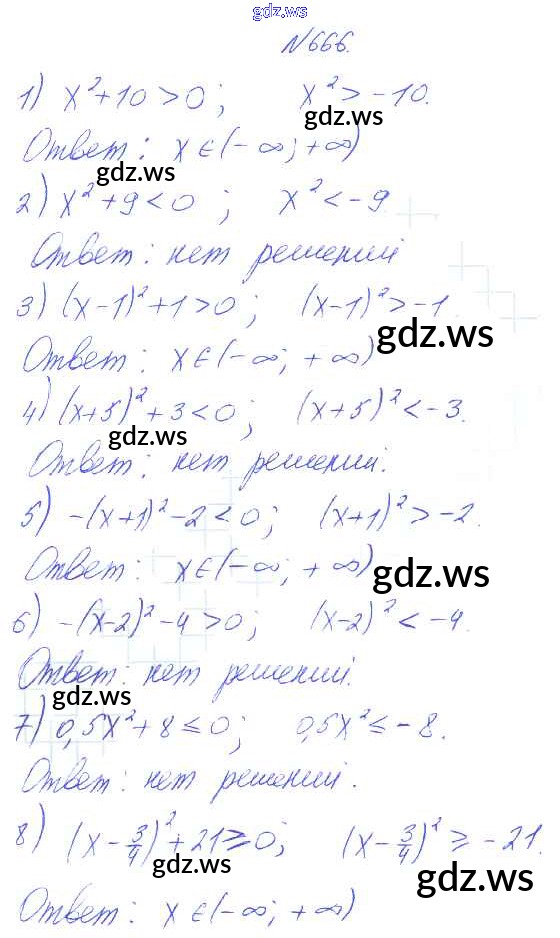 gdz.ws
№666.
1) x²+10>0; x²>-10.
gdz.ws
Ответ: x∈(-∞; +∞)
gdz.ws
2) x²+9<0; x²<-9
Ответ: нет решений
3) (x-1)²+1>0; (x-1)²>-1.
gdz.ws
Ответ: x∈(-∞; +∞)
4) (x+5)²+3<0; (x+5)²<-3.
gdz.ws
Ответ: нет решений.
5) -(x+1)²-2<0; (x+1)²>-2.
Ответ: x∈(-∞; +∞)
gdz.ws
6) -(x-2)²-4>0; (x-2)²<-4.
Ответ: нет решений.
gdz.ws
7) 0,5x²+8≤0; 0,5x²≤-8.
Ответ: нет решений.
8) (x-3/4)²+21≥0; (x-3/4)²≥-21.
gdz.ws
gdz.ws
Ответ: x∈(-∞; +∞)